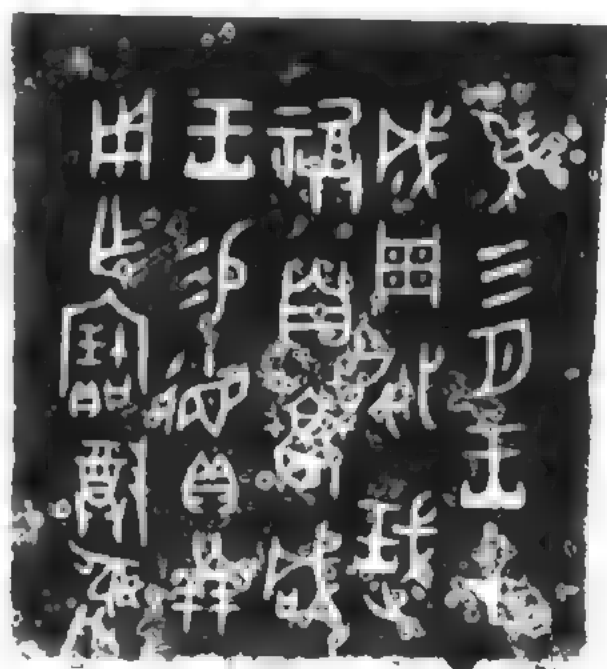 隹三月王才
成周征珷
祼自蒿咸
王易德貝廿朋
用乍寶尊彝